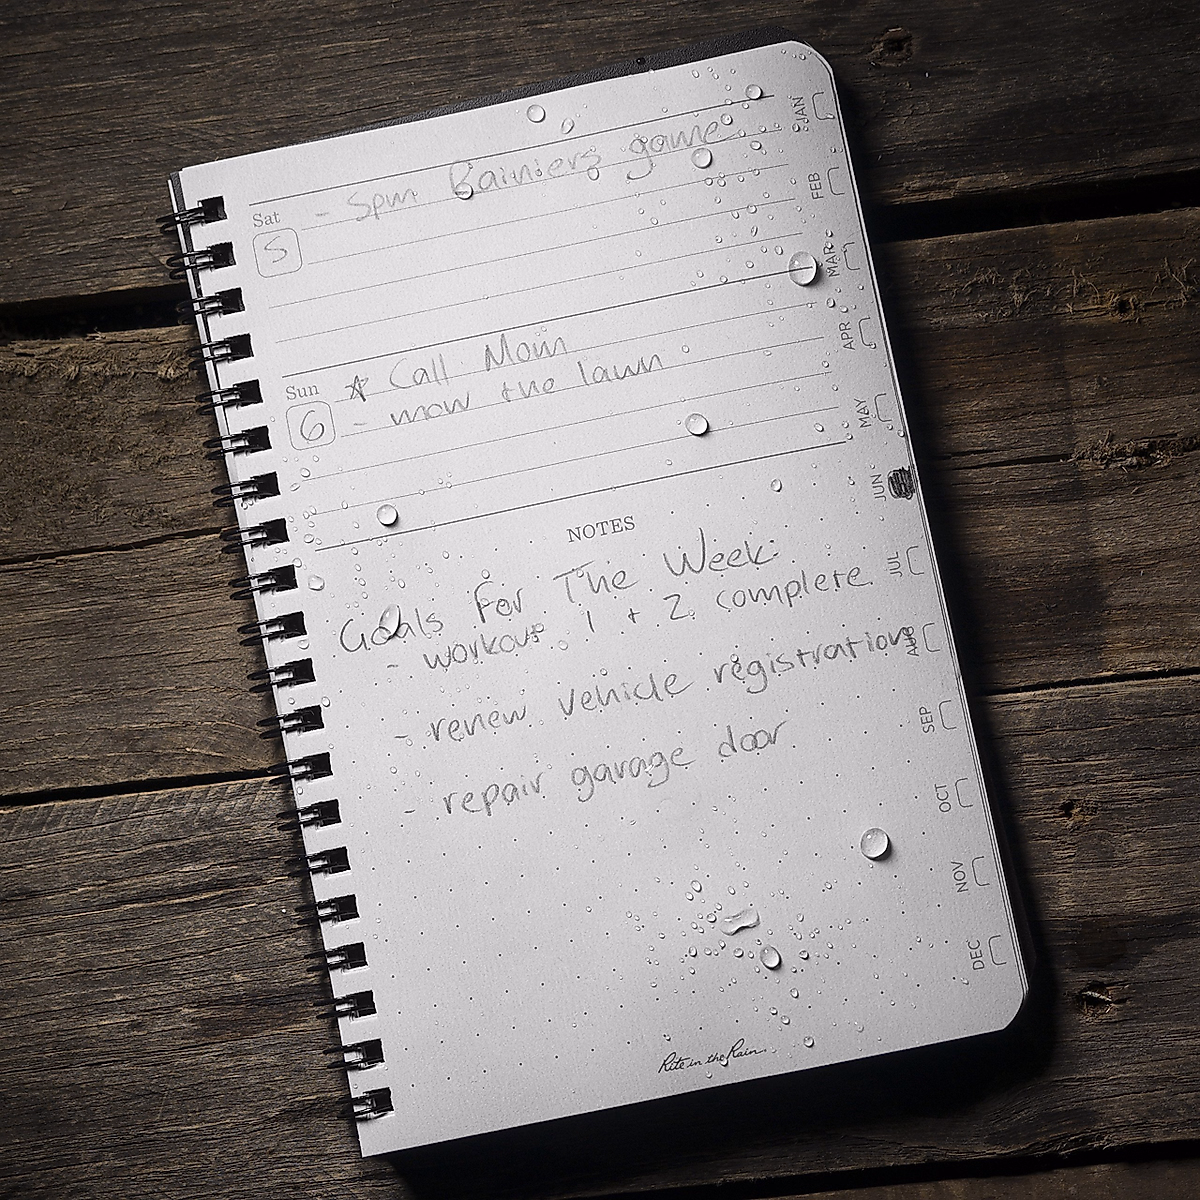 - 5pm Rainiers game
Sat
5
Sun
6
☆ Call Mom
- mow the lawn
NOTES
Goals For The Week:
- workout 1 + 2 complete
- renew vehicle registration
- repair garage door
JAN
FEB
MAR
APR
MAY
JUN
JUL
AUG
SEP
OCT
NOV
DEC
Rite in the Rain